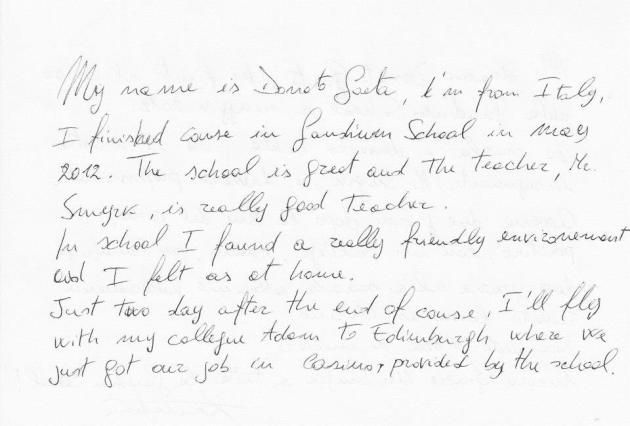 My name is Donato Gaeta, I'm from Italy,
I finished couse in School in may
2012. The school is great and the teacher, Mr.
Smyrk, is really good teacher.
In school I found a really friendly environement
and I felt as at home.
Just two day after the end of couse, I'll fly
with my collegue Adam to Edimburgh where we
just got our job in Casinos, provided by the school.